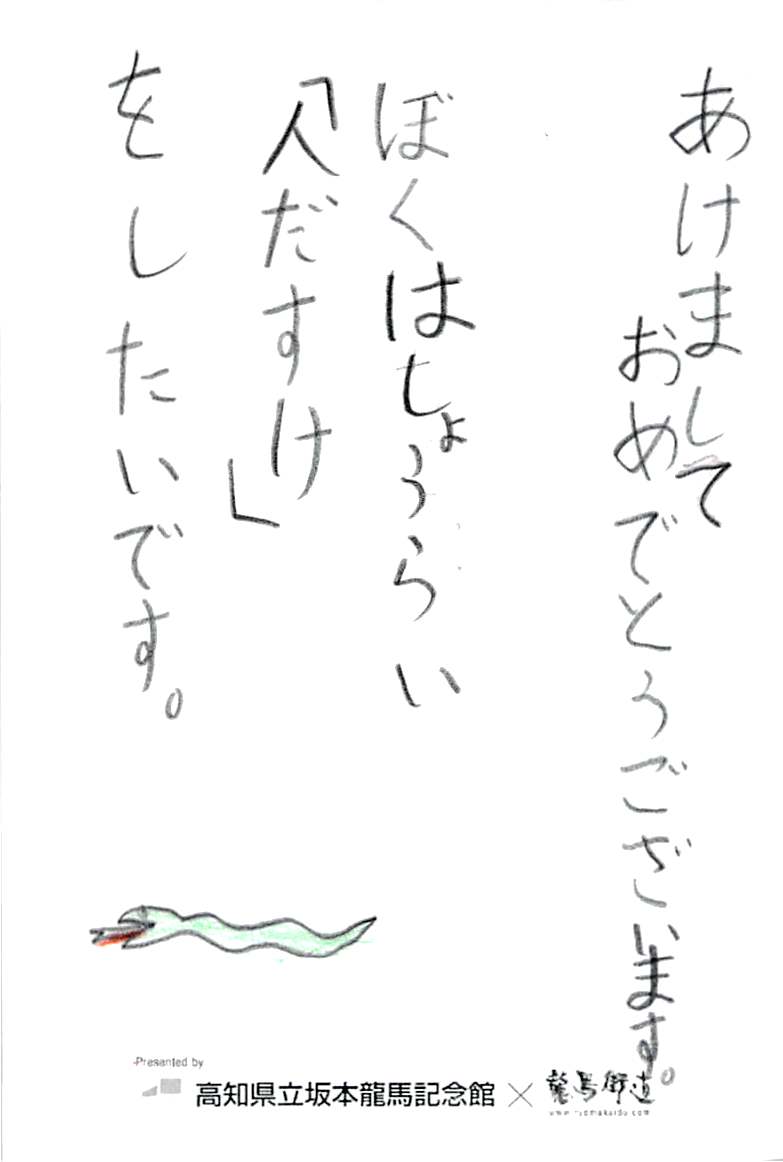 あけまして
おめでとうございます。
ぼくはしょうらい
「人だすけ」
をしたいです。
Presented by
高知県立坂本龍馬記念館×龍馬街道
www.ryomakaido.com